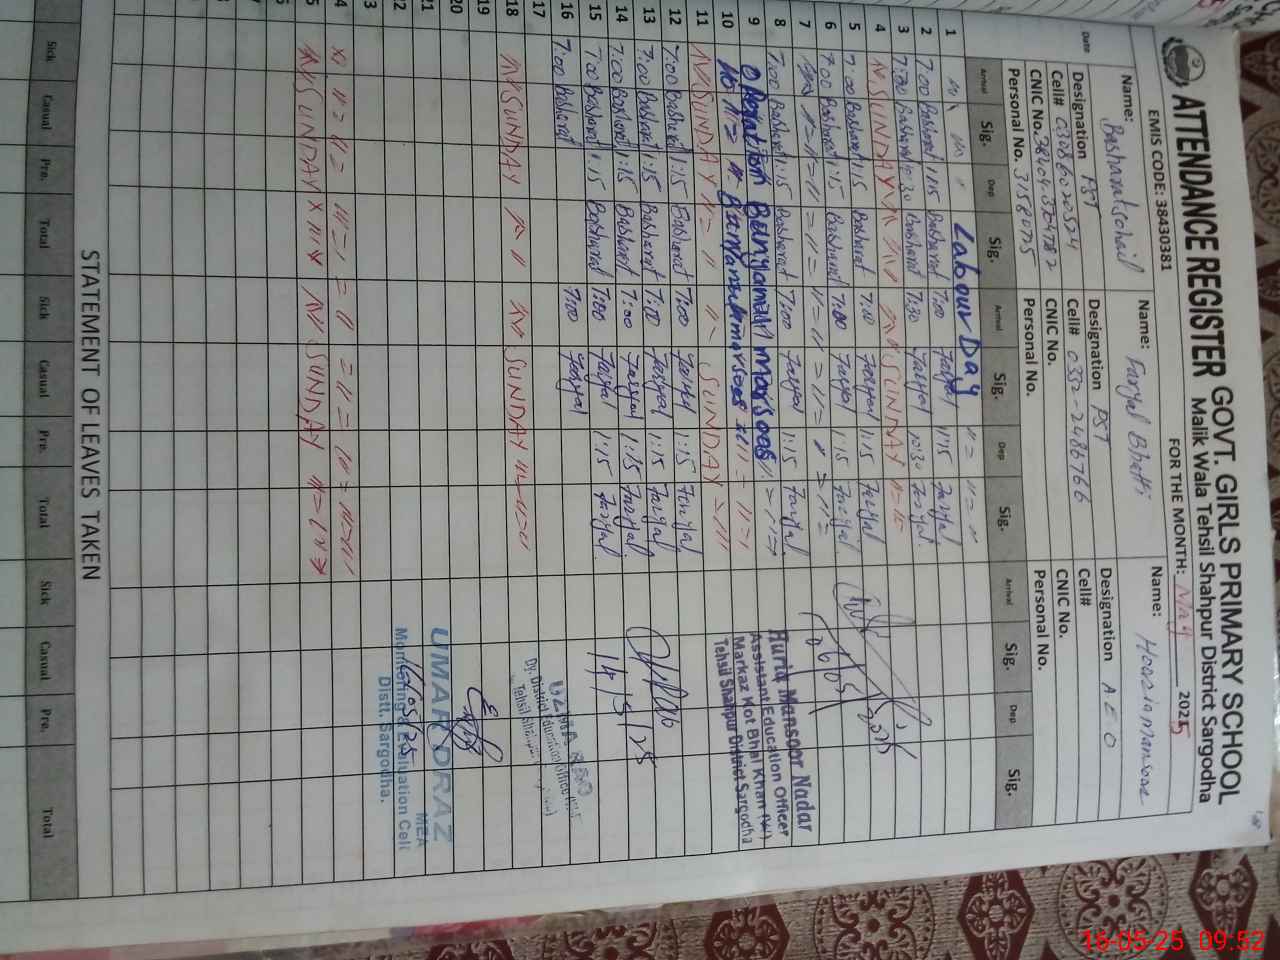 ATTENDANCE REGISTER GOVT. GIRLS PRIMARY SCHOOL
Malik Wala Tehsil Shahpur District Sargodha
EMIS CODE: 38430381 FOR THE MONTH: May 2025
Name: Basharat sohail Name: Faryal Bhatti Name:
Designation PST Designation PST Designation A E O
Cell# Cell# 0332-2486766 Cell#
CNIC No. CNIC No. CNIC No.
Personal No. 3158075 Personal No. Personal No.
Date Arrival Sig. Dep Sig. Arrival Sig. Dep Sig. Arrival Sig. Dep Sig.
1 Labour Day
2 7:00 Basharat 1:15 Basharat 7:00 Faryal 1:15 Faryal
3 7:30 Basharat 12:30 Basharat 7:30 Faryal 12:30 Faryal
4 SUNDAY SUNDAY
5 7:00 Basharat 1:15 Basharat 7:00 Faryal 1:15 Faryal
6 7:00 Basharat 1:15 Basharat 7:00 Faryal 1:15 Faryal
7
8 7:00 Basharat 1:15 Basharat 7:00 Faryal 1:15 Faryal
9 Operation Bunyanun marsoos
10 Bunyanun marsoos
11 SUNDAY SUNDAY
12 7:00 Basharat 1:15 Basharat 7:00 Faryal 1:15 Faryal
13 7:00 Basharat 1:15 Basharat 7:00 Faryal 1:15 Faryal
14 7:00 Basharat 1:15 Basharat 7:00 Faryal 1:15 Faryal
15 7:00 Basharat 1:15 Basharat 7:00 Faryal 1:15 Faryal
16 7:00 Basharat 7:00 Faryal
17
18 SUNDAY SUNDAY
19
20
21
22
23
24
25 SUNDAY SUNDAY
Huria Mansoor Nadar
Assistant Education Officer
Markaz Kot Bhai Khan (W)
Tehsil Shahpur District Sargodha
14/5/25
Dy. District Education Officer
UMAR DRAZ
MEA
Monitoring & Evaluation Cell
Distt. Sargodha.
STATEMENT OF LEAVES TAKEN
Sick Casual Pre. Total Sick Casual Pre. Total Sick Casual Pre. Total
16-05-25 09:52